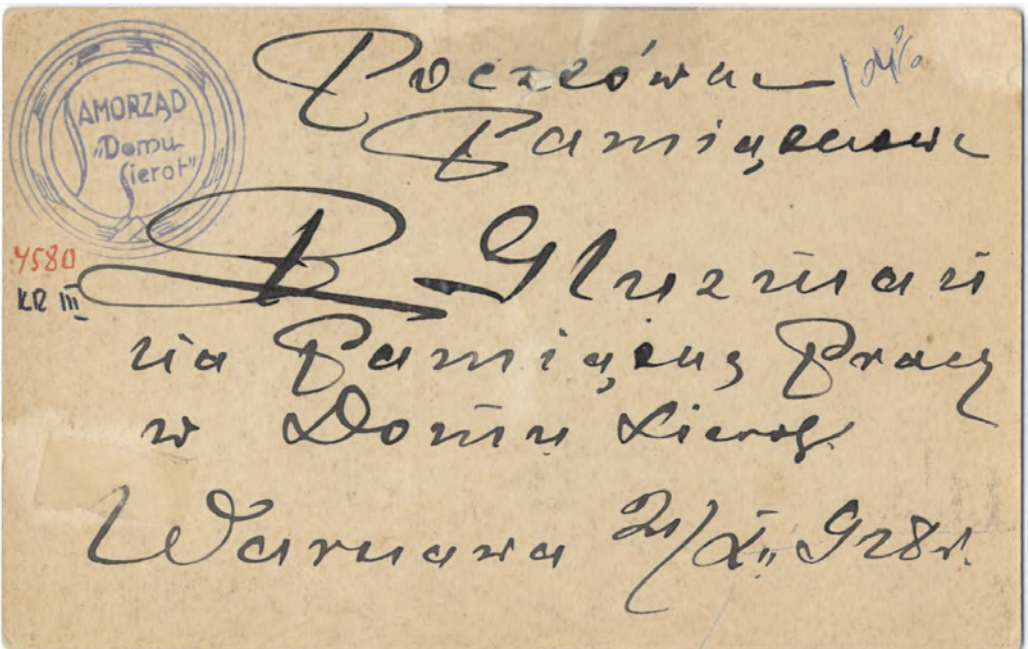 SAMORZĄD
„Domu
Sierot"
Pocztówka
Pamiątkowa
4580
KR III
B. Gluzman
na Pamiątkę Pracy
w Domu Sierot.
Warszawa 21/X. 928r.